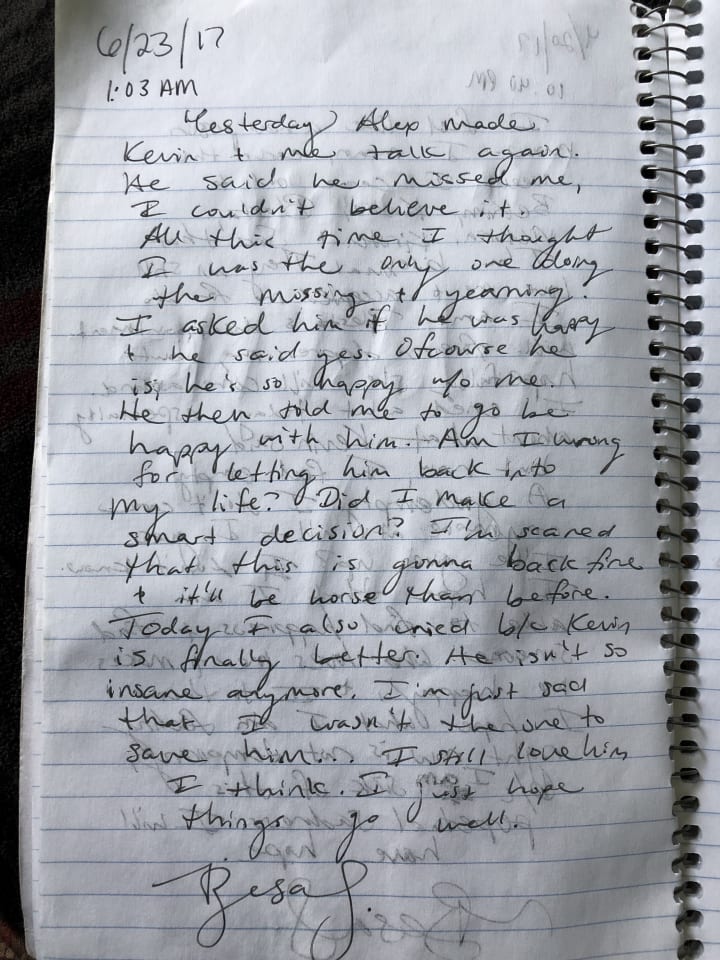 6/23/17
1:03 AM
Yesterday Alex made
Kevin + me talk again.
He said he missed me,
I couldn't believe it.
All this time I thought
I was the only one doing
the missing + yearning.
I asked him if he was happy
+ he said yes. Ofcourse he
is, he's so happy w/o me.
He then told me to go be
happy with him. Am I wrong
for letting him back into
my life? Did I make a
smart decision? I'm scared
that this is gonna backfire
+ it'll be worse than before.
Today I also cried b/c Kevin
is finally better. He isn't so
insane anymore. I'm just sad
that I wasn't the one to
save him... I still love him
I think. I just hope
things go well.
Besa G.